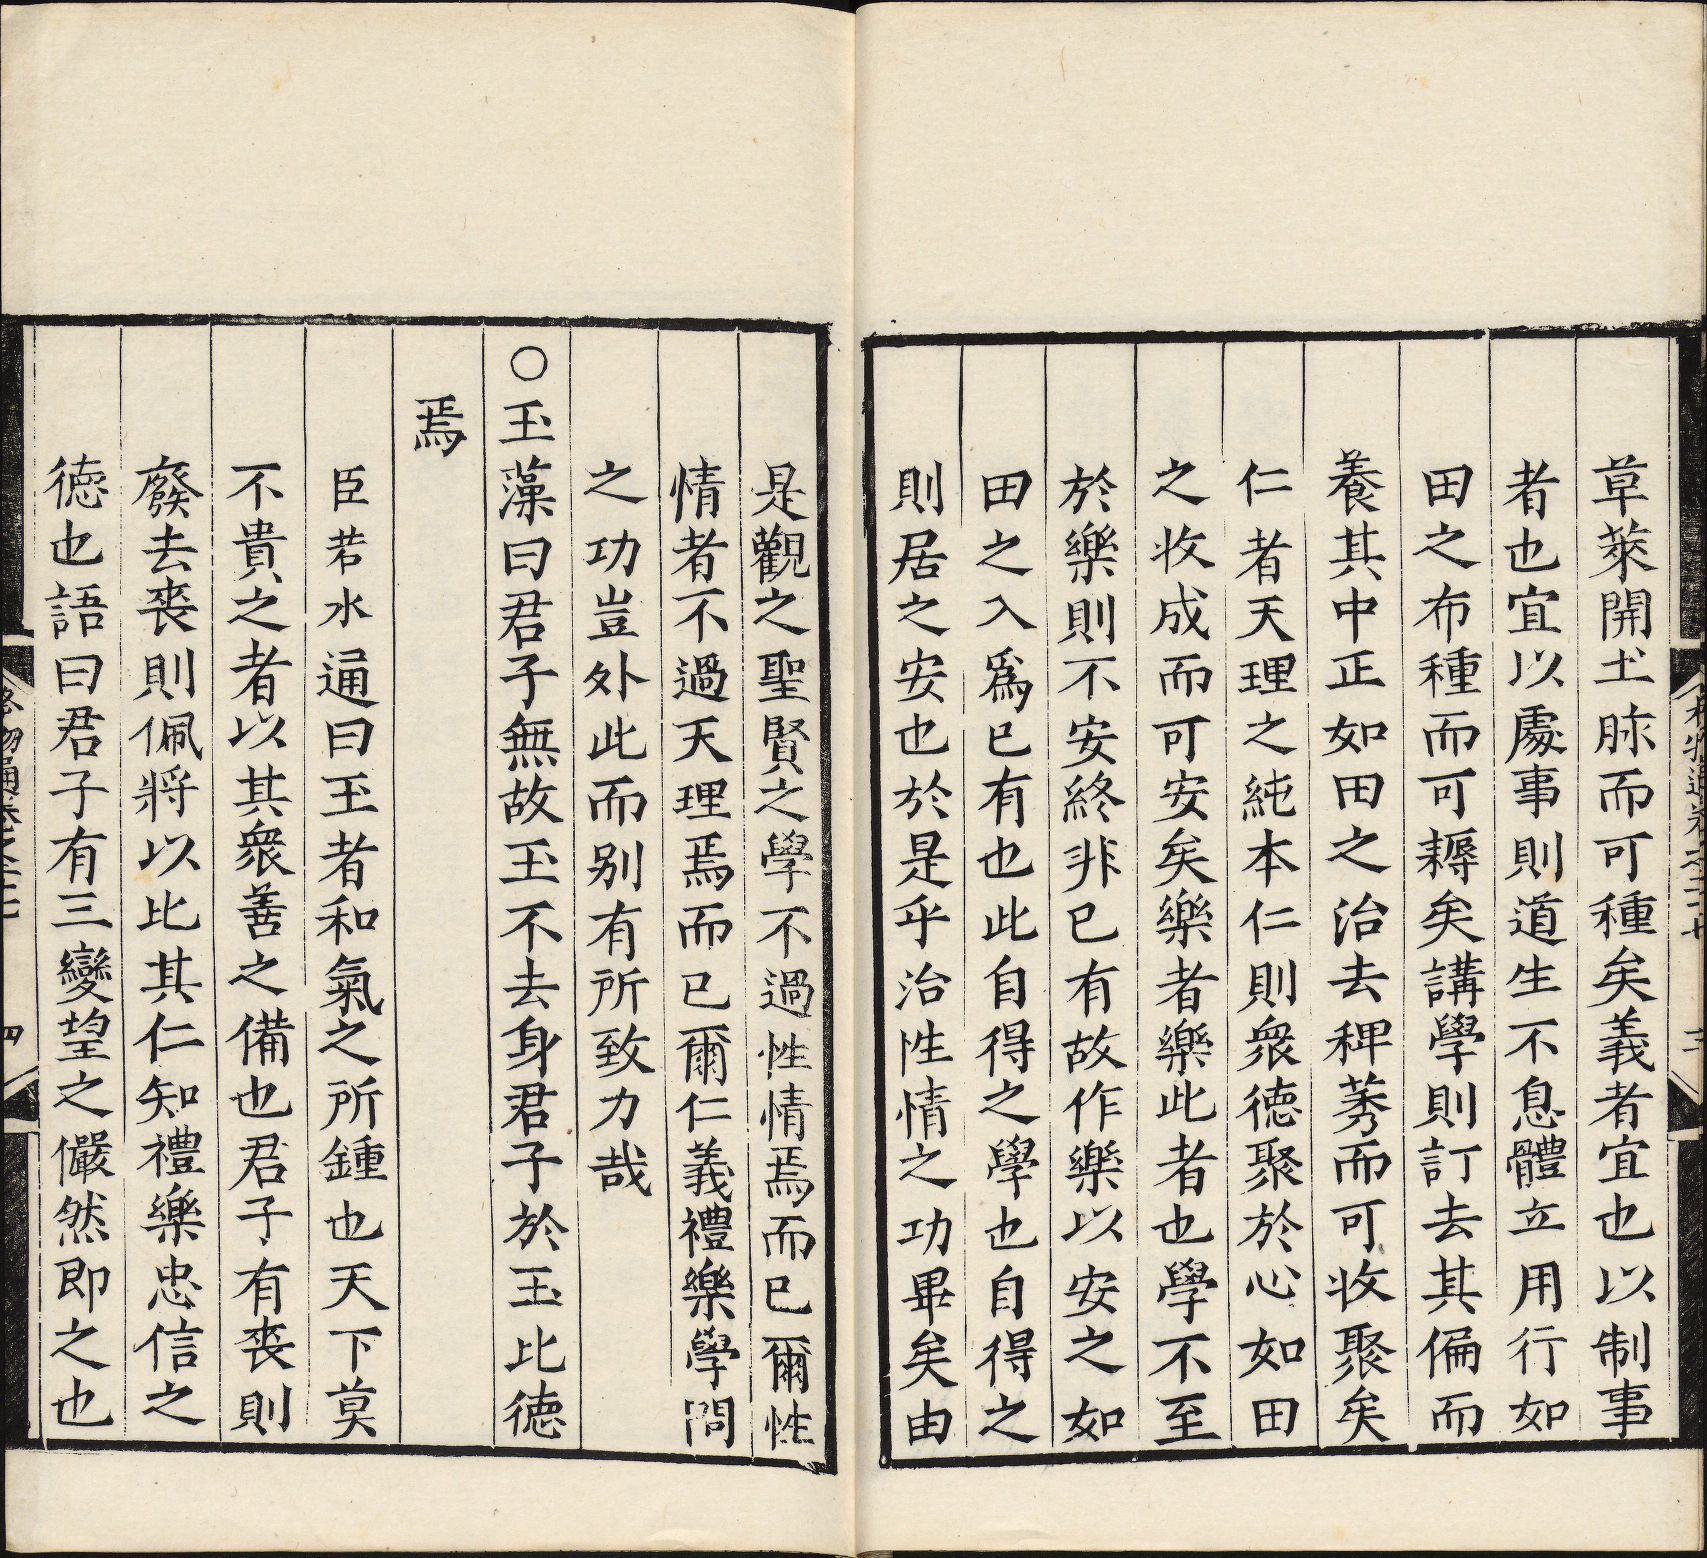 草萊開土脉而可種矣義者宜也以制事
者也宜以處事則道生不息體立用行如
田之布種而可耨矣講學則訂去其偏而
養其中正如田之治去稗莠而可收聚矣
仁者天理之純本仁則衆徳聚於心如田
之收成而可安矣樂者樂此者也學不至
於樂則不安終非已有故作樂以安之如
田之入爲已有也此自得之學也自得之
則居之安也於是乎治性情之功畢矣由
是觀之聖賢之學不過性情焉而已爾性
情者不過天理焉而已爾仁義禮樂學問
之功豈外此而别有所致力哉
○玉藻曰君子無故玉不去身君子於玉比徳
焉
臣若水通曰玉者和氣之所鍾也天下莫
不貴之者以其衆善之備也君子有喪則
廢去喪則佩將以比其仁知禮樂忠信之
徳也語曰君子有三變望之儼然即之也
格物通卷之二十七
四